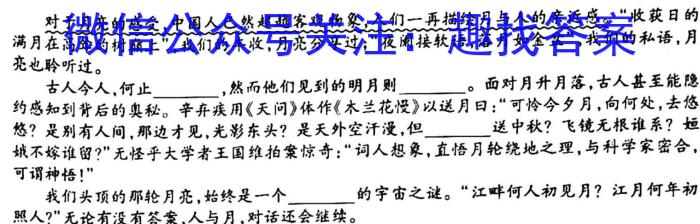 对于月亮的感受,中国人已然超越客观物象,人们一再描绘月与人的亲近感。“收获日的
微信公众号关注：趣找答案
满月在高高的树顶上”“我们的丰收,月亮分享过;”“夜阑接软语,落月如金盆”,我们的私语,月
亮也聆听过。
古人今人,何止________,然而他们见到的明月则________。面对月升月落,古人甚至能隐
约感知到背后的奥秘。辛弃疾用《天问》体作《木兰花慢》以送月曰:“可怜今夕月,向何处,去悠
悠?是别有人间,那边才见,光影东头?是天外空汗漫,但________送中秋?飞镜无根谁系?姮
娥不嫁谁留?”无怪乎大学者王国维拍案惊奇:“词人想象,直悟月轮绕地之理,与科学家密合,
可谓神悟!”
我们头顶的那轮月亮,始终是一个________的宇宙之谜。“江畔何人初见月?江月何年初
照人?”无论有没有答案,人与月,对话还会继续。